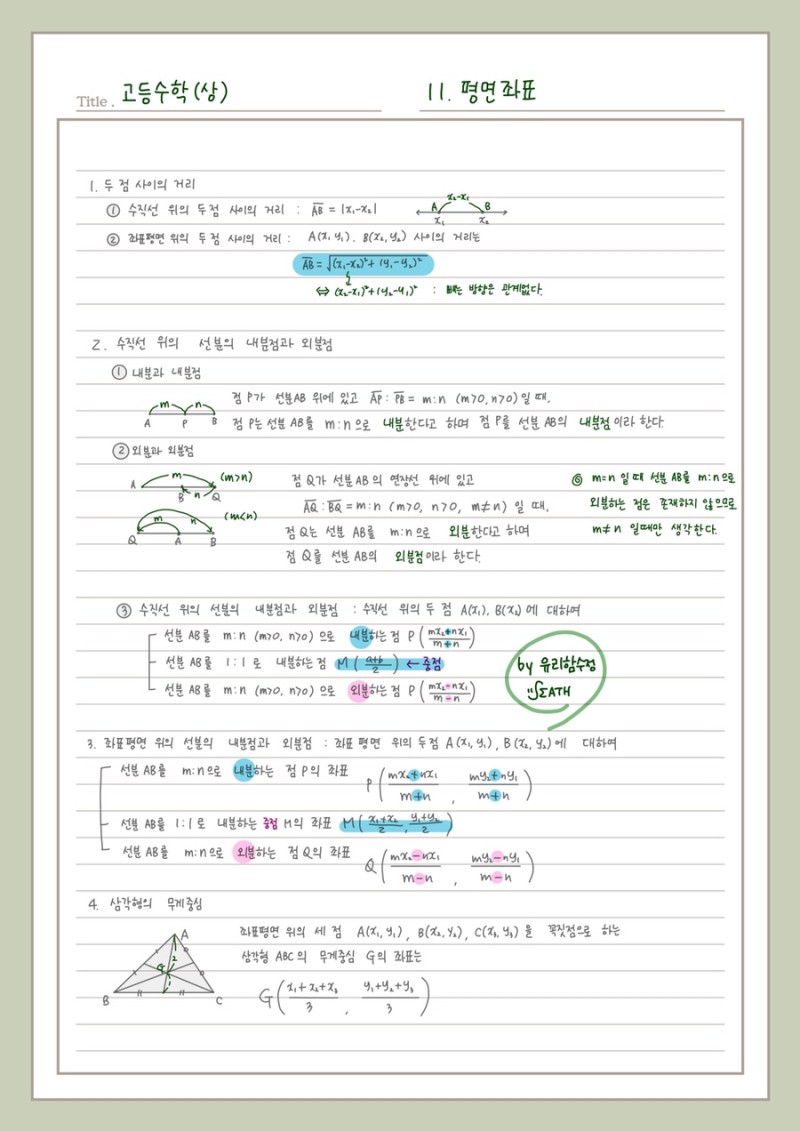 Title. 고등수학(상) 11. 평면좌표
1. 두 점 사이의 거리
① 수직선 위의 두 점 사이의 거리 : A̅B̅ = |x₁-x₂|
x₂-x₁
A B
x₁ x₂
② 좌표평면 위의 두 점 사이의 거리 : A(x₁y₁), B(x₂,y₂) 사이의 거리는
A̅B̅ = √(x₁-x₂)²+(y₁-y₂)²
⇔ (x₂-x₁)²+(y₂-y₁)² : 빼는 방향은 관계없다.
2. 수직선 위의 선분의 내분점과 외분점
① 내분과 내분점
m n
A P B
점 P가 선분AB 위에 있고 A̅P̅ : P̅B̅ = m:n (m>0, n>0)일 때,
점 P는 선분 AB를 m:n으로 내분한다고 하며 점 P를 선분 AB의 내분점이라 한다.
② 외분과 외분점
m (m>n)
A B n Q
m n (m<n)
Q A B
점 Q가 선분 AB의 연장선 위에 있고
A̅Q̅ : B̅Q̅ = m:n (m>0, n>0, m≠n) 일 때,
점 Q는 선분 AB를 m:n으로 외분한다고 하며
점 Q를 선분 AB의 외분점이라 한다.
◎ m=n 일 때 선분 AB를 m:n으로
외분하는 점은 존재하지 않으므로
m≠n 일때만 생각한다.
③ 수직선 위의 선분의 내분점과 외분점 : 수직선 위의 두 점 A(x₁), B(x₂)에 대하여
선분 AB를 m:n (m>0, n>0)으로 내분하는 점 P((mx₂+nx₁)/(m+n))
선분 AB를 1:1로 내분하는 점 M((a+b)/2) ← 중점
선분 AB를 m:n (m>0, n>0)으로 외분하는 점 P((mx₂-nx₁)/(m-n))
by 유리함수정
"∫ΣATH
3. 좌표평면 위의 선분의 내분점과 외분점 : 좌표평면 위의 두점 A(x₁,y₁), B(x₂,y₂)에 대하여
선분 AB를 m:n으로 내분하는 점 P의 좌표 P((mx₂+nx₁)/(m+n), (my₂+ny₁)/(m+n))
선분 AB를 1:1로 내분하는 중점 M의 좌표 M((x₁+x₂)/2, (y₁+y₂)/2)
선분 AB를 m:n으로 외분하는 점 Q의 좌표 Q((mx₂-nx₁)/(m-n), (my₂-ny₁)/(m-n))
4. 삼각형의 무게중심
A
2
G
B C
좌표평면 위의 세 점 A(x₁,y₁), B(x₂,y₂), C(x₃,y₃)을 꼭짓점으로 하는
삼각형 ABC의 무게중심 G의 좌표는
G((x₁+x₂+x₃)/3, (y₁+y₂+y₃)/3)